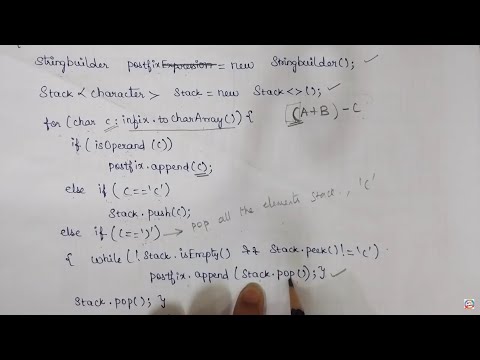 Stringbuilder postfixExpression = new Stringbuilder(); ✓
Stack < character > Stack = new Stack<>(); ✓
for (char c : infix.toCharArray()) {
(A+B) - C
if (isOperand (c))
postfix.append(c);
else if (c=='(')
Stack.push(c);
else if (c==')') → pop all the elements stack., '('
{ while (! Stack.isEmpty() && Stack.peek() != '(')
postfix.append (Stack.pop()); } ✓
Stack.pop(); }